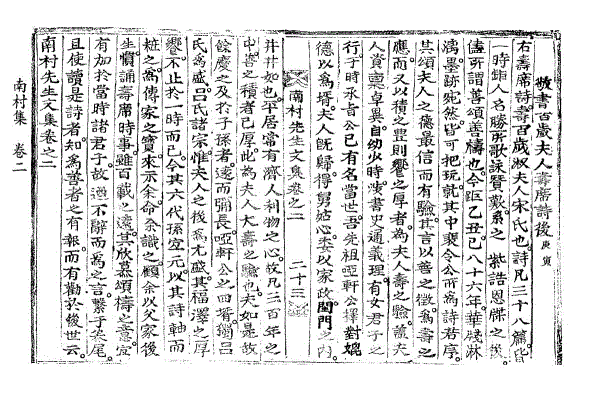 敬書百歲夫人壽席詩後 庚寅
右壽席詩壽百歲淑夫人宋氏也。詩凡三十八篇。皆
一時鉅人名勝所歌詠贊歎。系之 紫誥恩牒之後。
儘所謂善頌善禱也。今距乙丑已八十六年。華牋淋
漓墨跡宛然。皆可把玩。就其中裴令公所爲詩若序。
其頌夫人之德最信而有驗。其言以善之徵爲壽之
應。而又以積之豊則饗之厚者。爲夫人壽之驗。蓋夫
人資稟卓異。自幼少時。涉書史通義理。有女君子之
行。于時永春公已有名當世。吾先祖啞軒公擇對媲
德以爲壻。夫人旣歸得舅姑心。委以家政。閨門之內
南村先生文集卷之二 二十三
井井如也。平居常有濟人利物之心。故凡三百年之
中。善之積者已厚。此爲夫人大壽之驗也。夫如是故
餘慶之及於子孫者。遠而彌長。啞軒公之四胥。獨呂
氏爲盛。呂氏諸宗。惟夫人之後爲尤盛。其福澤之厚
饗。不止於一時而已。今其六代孫空元。以其詩軸而
粧之爲傳家之寶。來示余命余識之。顧余以父家後
生。慣誦壽席時事。雖百載之遠。其欣慕頌禱之意。宜
有加於當時諸君子。故遂不辭而爲之言。繫于卷尾。
且使讀是詩者。知爲善者之有報。而有勸於後世云。
南村先生文集卷之二
南村集 卷二